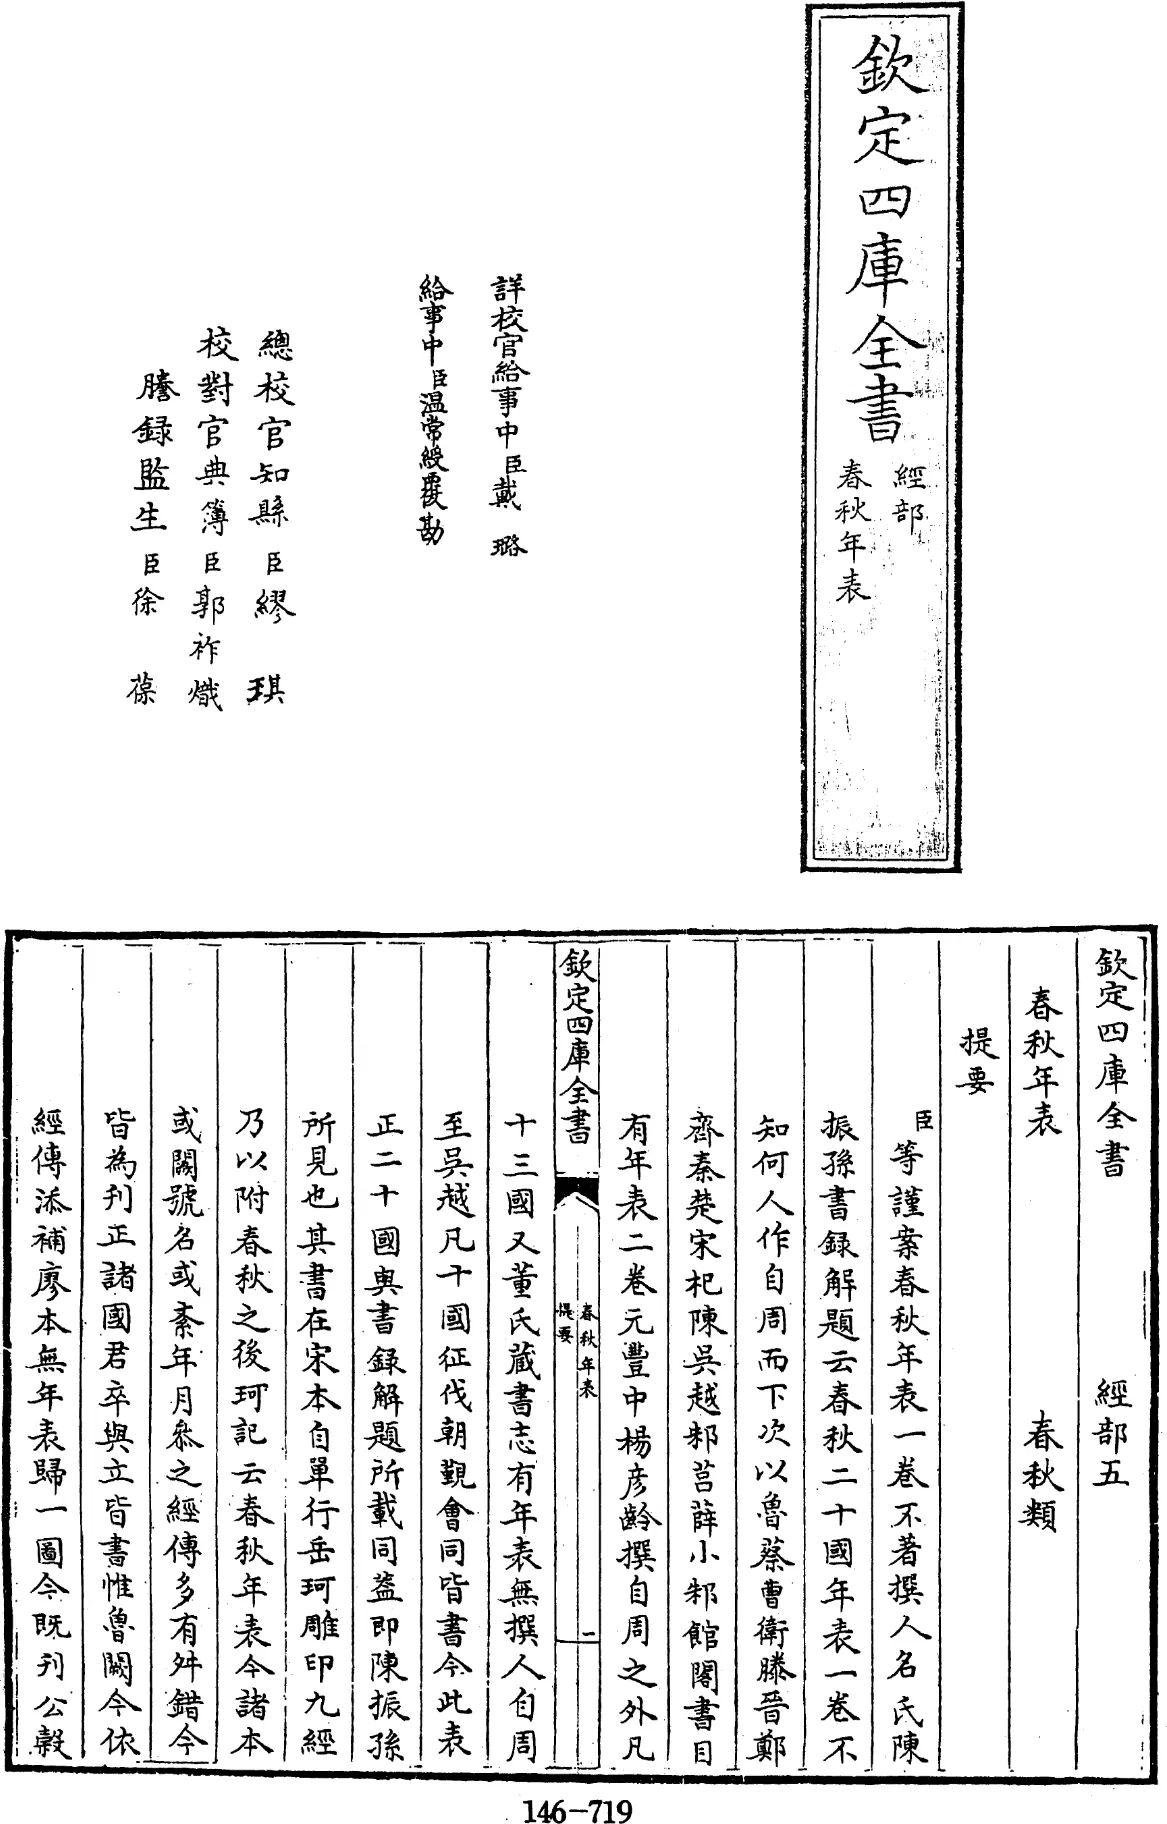 欽定四庫全書
經部
春秋年表
詳校官給事中臣戴璐
給事中臣温常綬覆勘
總校官知縣臣繆琪
校對官典簿臣郭祚熾
謄録監生臣徐葆
欽定四庫全書 經部五
春秋年表 春秋類
提要
臣等謹案春秋年表一巻不著撰人名氏陳
振孫書録解題云春秋二十國年表一巻不
知何人作自周而下次以魯蔡曹衛滕晉鄭
齊秦楚宋杞陳吳越邾莒薛小邾館閣書目
有年表二巻元豐中楊彦齡撰自周之外凡
欽定四庫全書
春秋年表
提要
一
十三國又董氏藏書志有年表無撰人自周
至吳越凡十國征伐朝覲會同皆書今此表
正二十國與書録解題所載同葢即陳振孫
所見也其書在宋本自單行岳珂雕印九經
乃以附春秋之後珂記云春秋年表今諸本
或闕號名或紊年月叅之經傳多有舛錯今
皆為刋正諸國君卒與立皆書惟魯闕今依
經傳添補廖本無年表歸一圖今既刋公穀
146-719